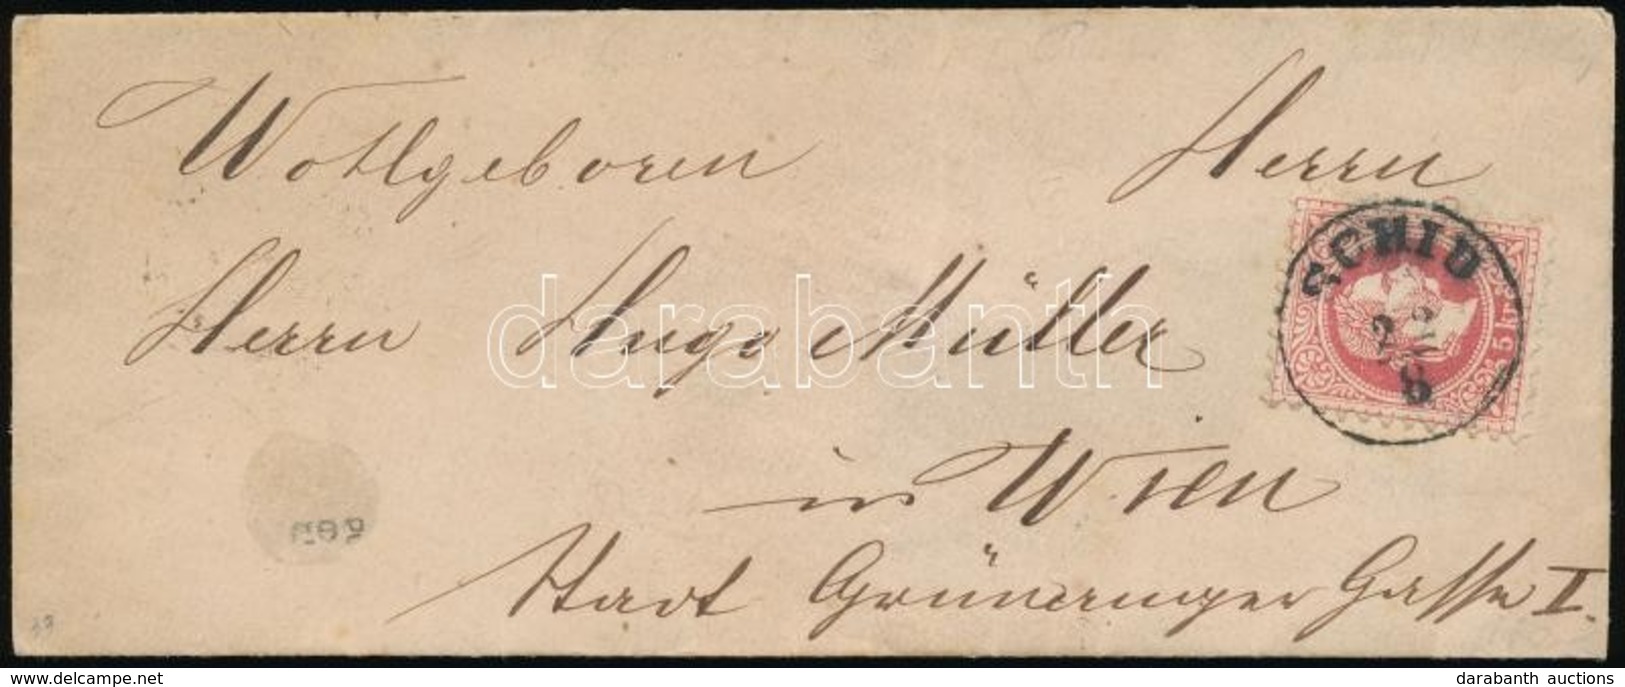 Wohlgeboren Herrn
Herrn Hugo Müller
in Wien
Stadt Grünanger Gasse I.
ACHIU
22
8
5 kr
darabanth
www.delcampe.net
darabanth auctions